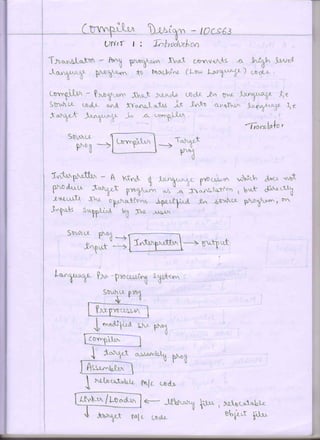 Compiler Design - 10CS63
UNIT I : Introduction
Translator - Any program that converts a high level
language program to Machine (Low Language) code.
Compiler - Program that reads code in one language i.e
source code and translates it into another language i.e
target language is a compiler.
Translator
Source prog → Compiler → Target prog
Interpreter - A kind of language processor which does not
produce target program as a translation, but directly
execute the operations specified in source program, on
inputs supplied by the user.
Source prog →
Input → Interpreter → output
Language Pre-processing system :
Source prog
Preprocessor
modified src prog
Compiler
target assembly prog
Assembler
relocatable m/c code
Linker/Loader ← library files, relocatable
object files
target m/c code